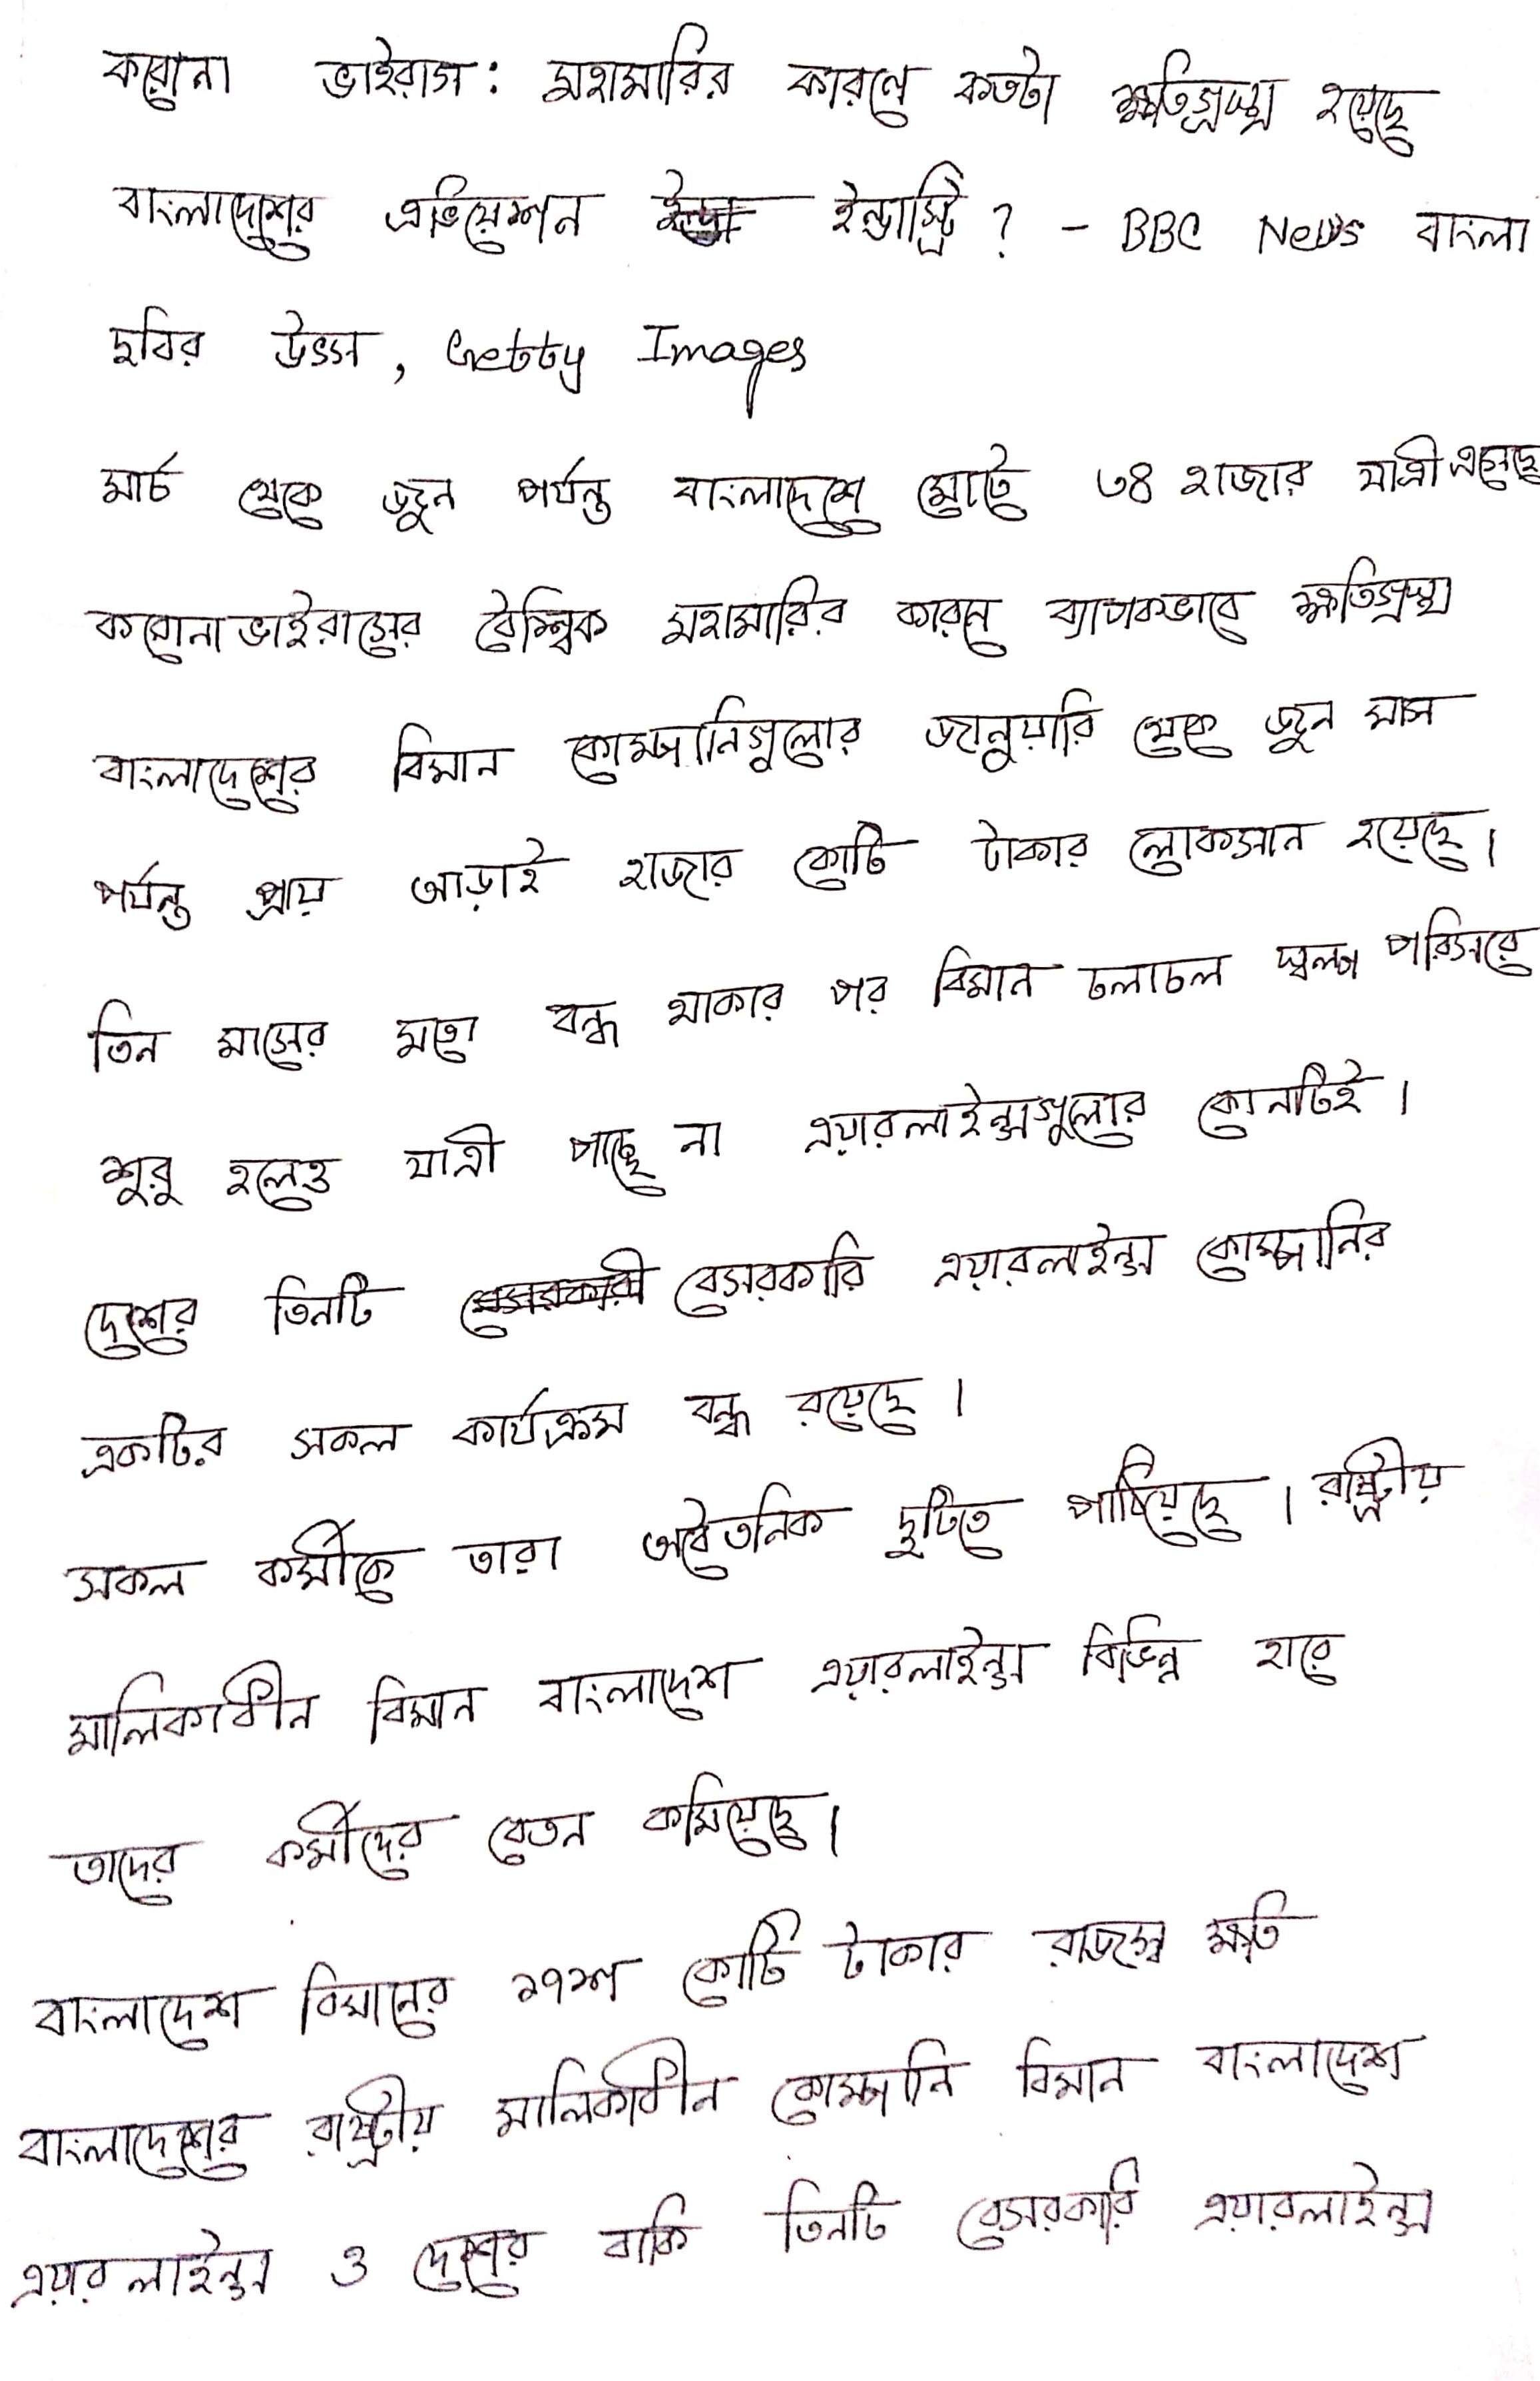 করোনা ভাইরাস: মহামারির কারণে কতটা ক্ষতিগ্রস্থ হয়েছে
বাংলাদেশের এভিয়েশন ইন্ডাস্ট্রি? - BBC News বাংলা
ছবির উৎস, Getty Images
মার্চ থেকে জুন পর্যন্ত বাংলাদেশে মোটে ৩৪ হাজার যাত্রী এসেছে
করোনাভাইরাসের বৈশ্বিক মহামারির কারনে ব্যাপকভাবে ক্ষতিগ্রস্থ
বাংলাদেশের বিমান কোম্পানিগুলোর জানুয়ারি থেকে জুন মাস
পর্যন্ত প্রায় আড়াই হাজার কোটি টাকার লোকসান হয়েছে।
তিন মাসের মতো বন্ধ থাকার পর বিমান চলাচল স্বল্প পরিসরে
শুরু হলেও যাত্রী পাচ্ছে না এয়ারলাইন্সগুলোর কোনটিই।
দেশের তিনটি বেসরকারি এয়ারলাইন্স কোম্পানির
একটির সকল কার্যক্রম বন্ধ রয়েছে।
সকল কর্মীকে তারা অবৈতনিক ছুটিতে পাঠিয়েছে। রাষ্ট্রীয়
মালিকাধীন বিমান বাংলাদেশ এয়ারলাইন্স বিভিন্ন হারে
তাদের কর্মীদের বেতন কমিয়েছে।
বাংলাদেশ বিমানের ২৭শ কোটি টাকার রাজস্ব ক্ষতি
বাংলাদেশের রাষ্ট্রীয় মালিকাধীন কোম্পানি বিমান বাংলাদেশ
এয়ারলাইন্স ও দেশের বাকি তিনটি বেসরকারি এয়ারলাইন্স